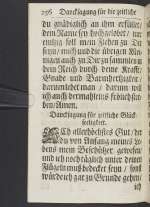 296 Dancksagung für die zeitliche
du gnädiglich an ihm erfüllet/
dein Name sey hochgelobet/
mein Flehen zu Dir
seyn/ mich und die übrigen
auch zu Dir zu sammlen in
dein Reich durch deine Krafft/
Gnade und Barmhertzigkeit/
daramb lobet man/ darum wil
ich auch dermahleins frölich ster-
ben/ Amen.
Dancksagung für zeitliche Glück-
seeligkeit.
ACh allerhöchstes Gut/ der
du von Anfang meines
bens mein Beschützer gewesen/
und ich noch täglich unter deinen
Flügeln muß bedecket seyn/ sonst
würde ich gar zu Grunde gehen/
ich